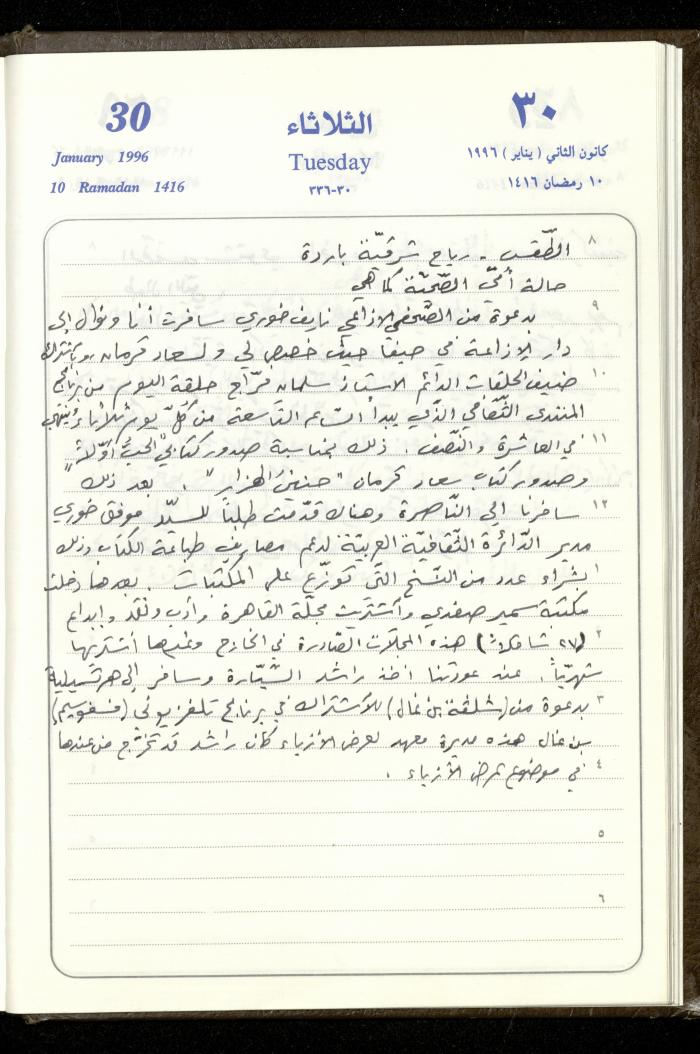 30
January 1996
10 Ramadan 1416
الثلاثاء
Tuesday
٣٠-٣٣٦
٣٠
كانون الثاني ( يناير ) ١٩٩٦
١٠ رمضان ١٤١٦
٨ الطّقس - رياح شرقيّة باردة
حالة أمّي الصّحيّة كما هي
٩
بدعوة من الصّحفي الإذاعي نايف خوري سافرت أنا ونوال إلى
دار الإذاعة في حيفا حيث خصص لي ولسعاد قرمان وبإشتراك
١٠ ضيف الحلقات الدائم الاستاذ سلمان فرّاج حلقة اليوم من برنامج
المنتدى الثّقافي الذّي يبدأ السّاعه التّاسعة من كلّ يوم ثلاثاء وينتهي
١١ في العاشرة والنّصف . ذلك بمناسبة صدور كتابي "الحبّ أوّلاً"
وصدور كتاب سعاد قرمان "حنين الهزار" . بعد ذلك
١٢ سافرنا الى النّاصرة وهناك قدّمت طلبًا للسيّد موفق خوري
مدير الدّائرة الثّقافيّة العربيّة لدعم مصاريف طباعة الكتاب وذلك
١ لشراء عدد من النّسخ التّي توزّع على المكتبات . بعدها دخلت
مكتبة سمير صفدي وأشتريت مجلّة القاهرة وأدب ونقد وإبداع
٢ (٢٧ شاقلاً) هذه المجلّات الصّادرة في الخارج وغيرها أشتريها
شهريّاً . عند عودتنا اخذ راشد السّيّارة وسافر إلى هرتسيلية
٣ بدعوة من (شلفة بن غال) للأشتراك في برنامج تلفزيوني
بن غال هذه مديرة معهد لعرض الأزياء كان راشد قد تخرّج من عندها
٤ في موضوع عرض الأزياء .
٥
٦